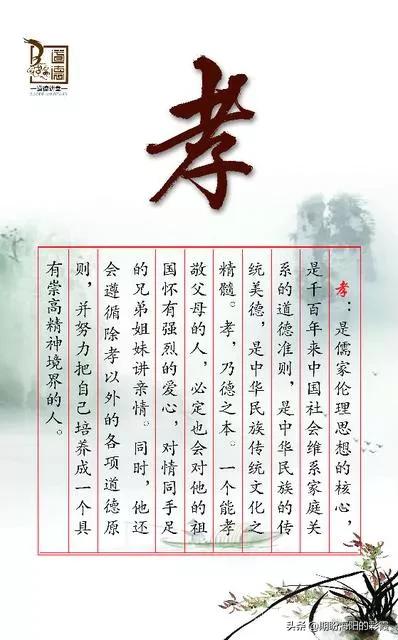 道德
道德讲堂
孝
孝：是儒家伦理思想的核心，
是千百年来中国社会维系家庭关
系的道德准则，是中华民族的传
统美德，是中华民族传统文化之
精髓。孝，乃德之本。一个能孝
敬父母的人，必定也会对他的祖
国怀有强烈的爱心，对情同手足
的兄弟姐妹讲亲情。同时，他还
会遵循除孝以外的各项道德原
则，并努力把自己培养成一个具
有崇高精神境界的人。
头条 @期盼海阳的彩霞